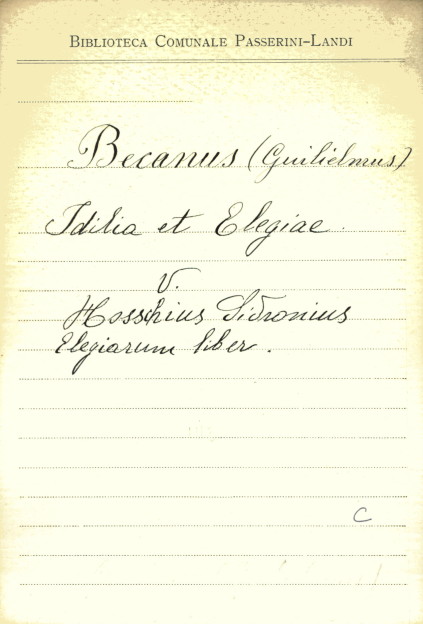 BIBLIOTECA COMUNALE PASSERINI-LANDI
Becanus (Guilielmus)
Idilia et Elegiae.
V.
Hosschius Sidronius
Elegiarum liber.
C